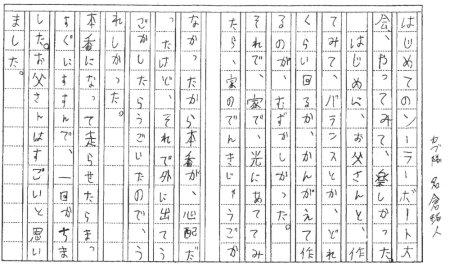 はじめてのソーラーボート大
会、やってみて、楽しかった。
はじめに、お父さんと、作
てみて、バランスとか、どれ
くらい回るか、かんがえて作
るのが、むずかしかった。
それで、家で、光にあててみ
たら、家のでんきじゃうごか
なかったから本番が、心配だ
ったけど、それで外に出てう
ごかしたらうごいたので、う
れしかった。
本番になって走らせたらまっ
すぐにすすんで、一回かちま
した。お父さんはすごいと思い
ました。